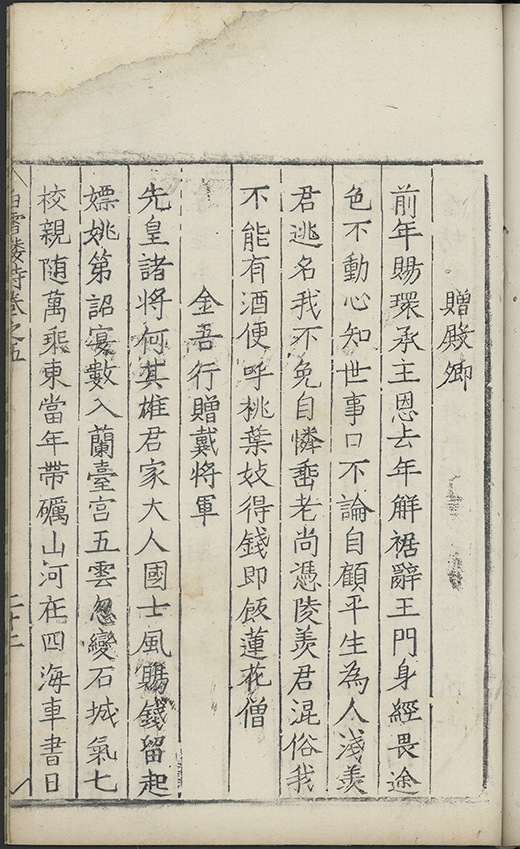 贈殿卿
前年賜環承主恩去年解裾辭王門身經畏途
色不動心知世事口不論自顧平生為人淺羨
君逃名我不免自憐垂老尚憑陵羨君混俗我
不能有酒便呼桃葉妓得錢即飯蓮花僧
金吾行贈戴將軍
先皇諸將何其雄君家大人國士風賜錢留起
嫖姚第詔宴數入蘭臺宮五雲忽變石城氣七
校親隨萬乘東當年帶礪山河在四海車書日
白雪樓詩卷之五
二十二